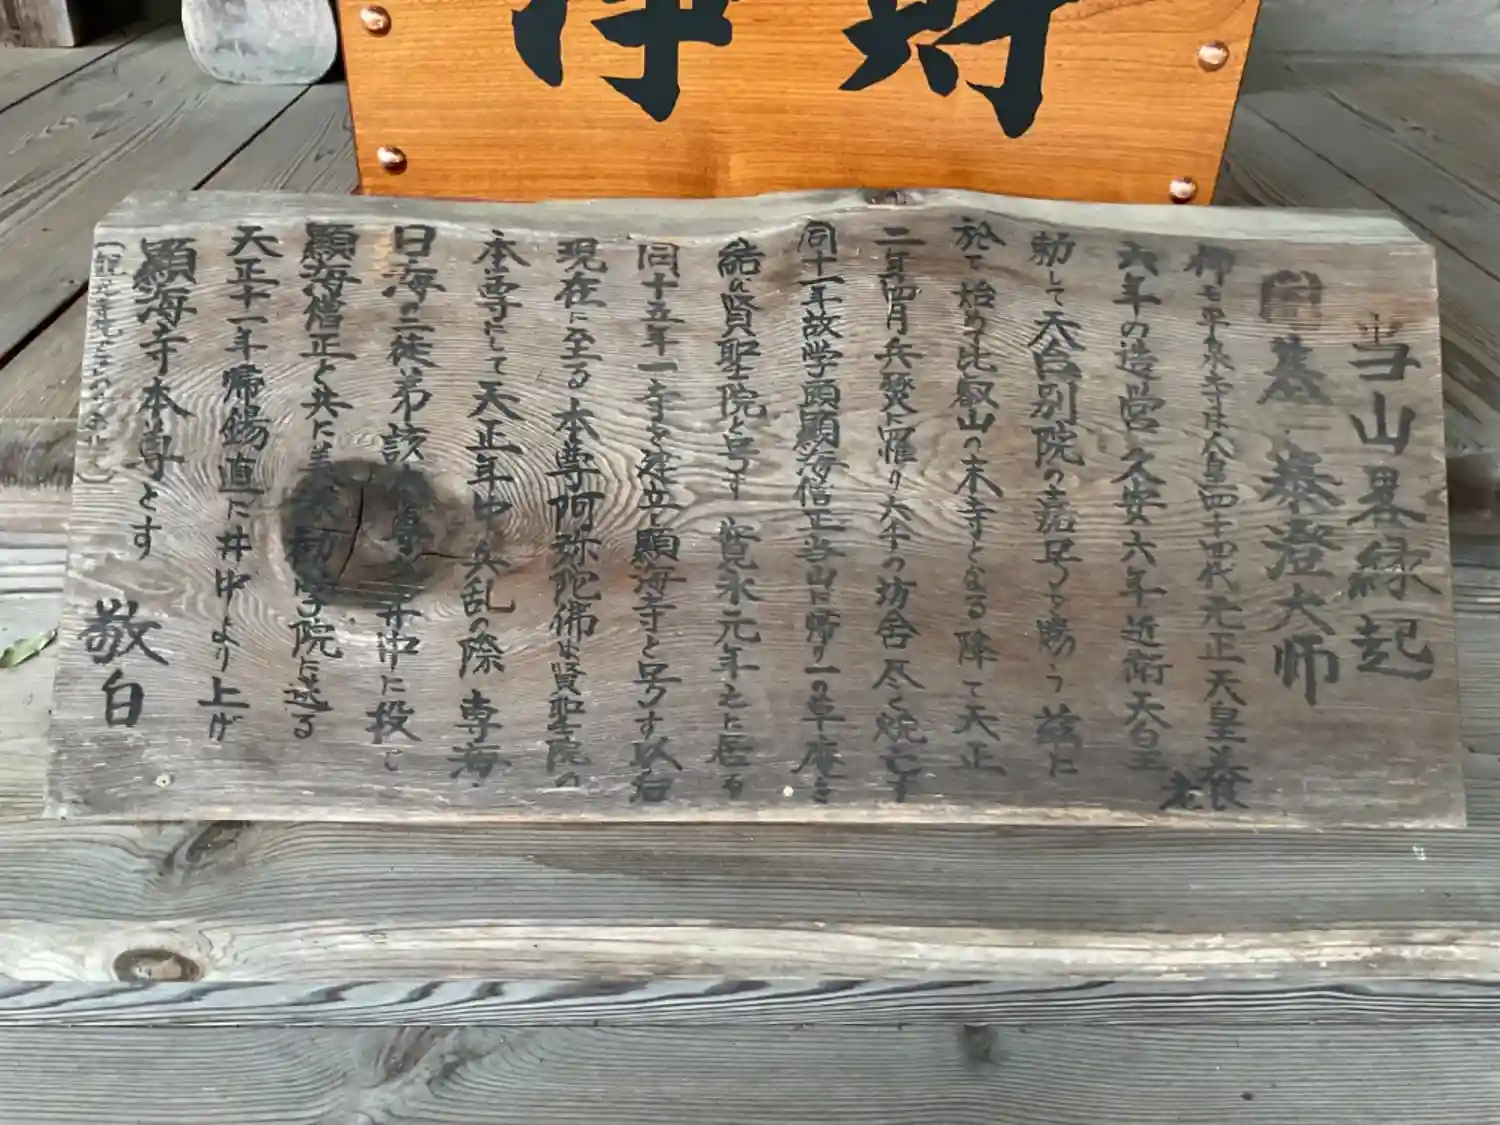 浄財
当山畧縁起
開基 泰澄大師
抑も平泉寺は人皇四十四代元正天皇養老
六年の造営久安六年近衛天皇
勅して天台別院の嘉号を賜う 茲に
於て始めて比叡山の末寺となる 降て天正
二年四月兵燹に罹り六千の坊舎尽く焼亡す
同十一年故学頭顯海僧正当山に帰り一の草庵を
結び賢聖院と号す 寛永元年之に居る
同十五年一寺を建立し顯海寺と号す以后
現在に至る 本尊阿弥陀佛は賢聖院の
本尊にして天正年中 兵乱の際 専海
日海の二徒弟 該本尊を井中に投じ
顯海僧正と共に美濃勧学院に送る
天正十一年帰錫直に井中より上げ
顯海寺本尊とす
敬白